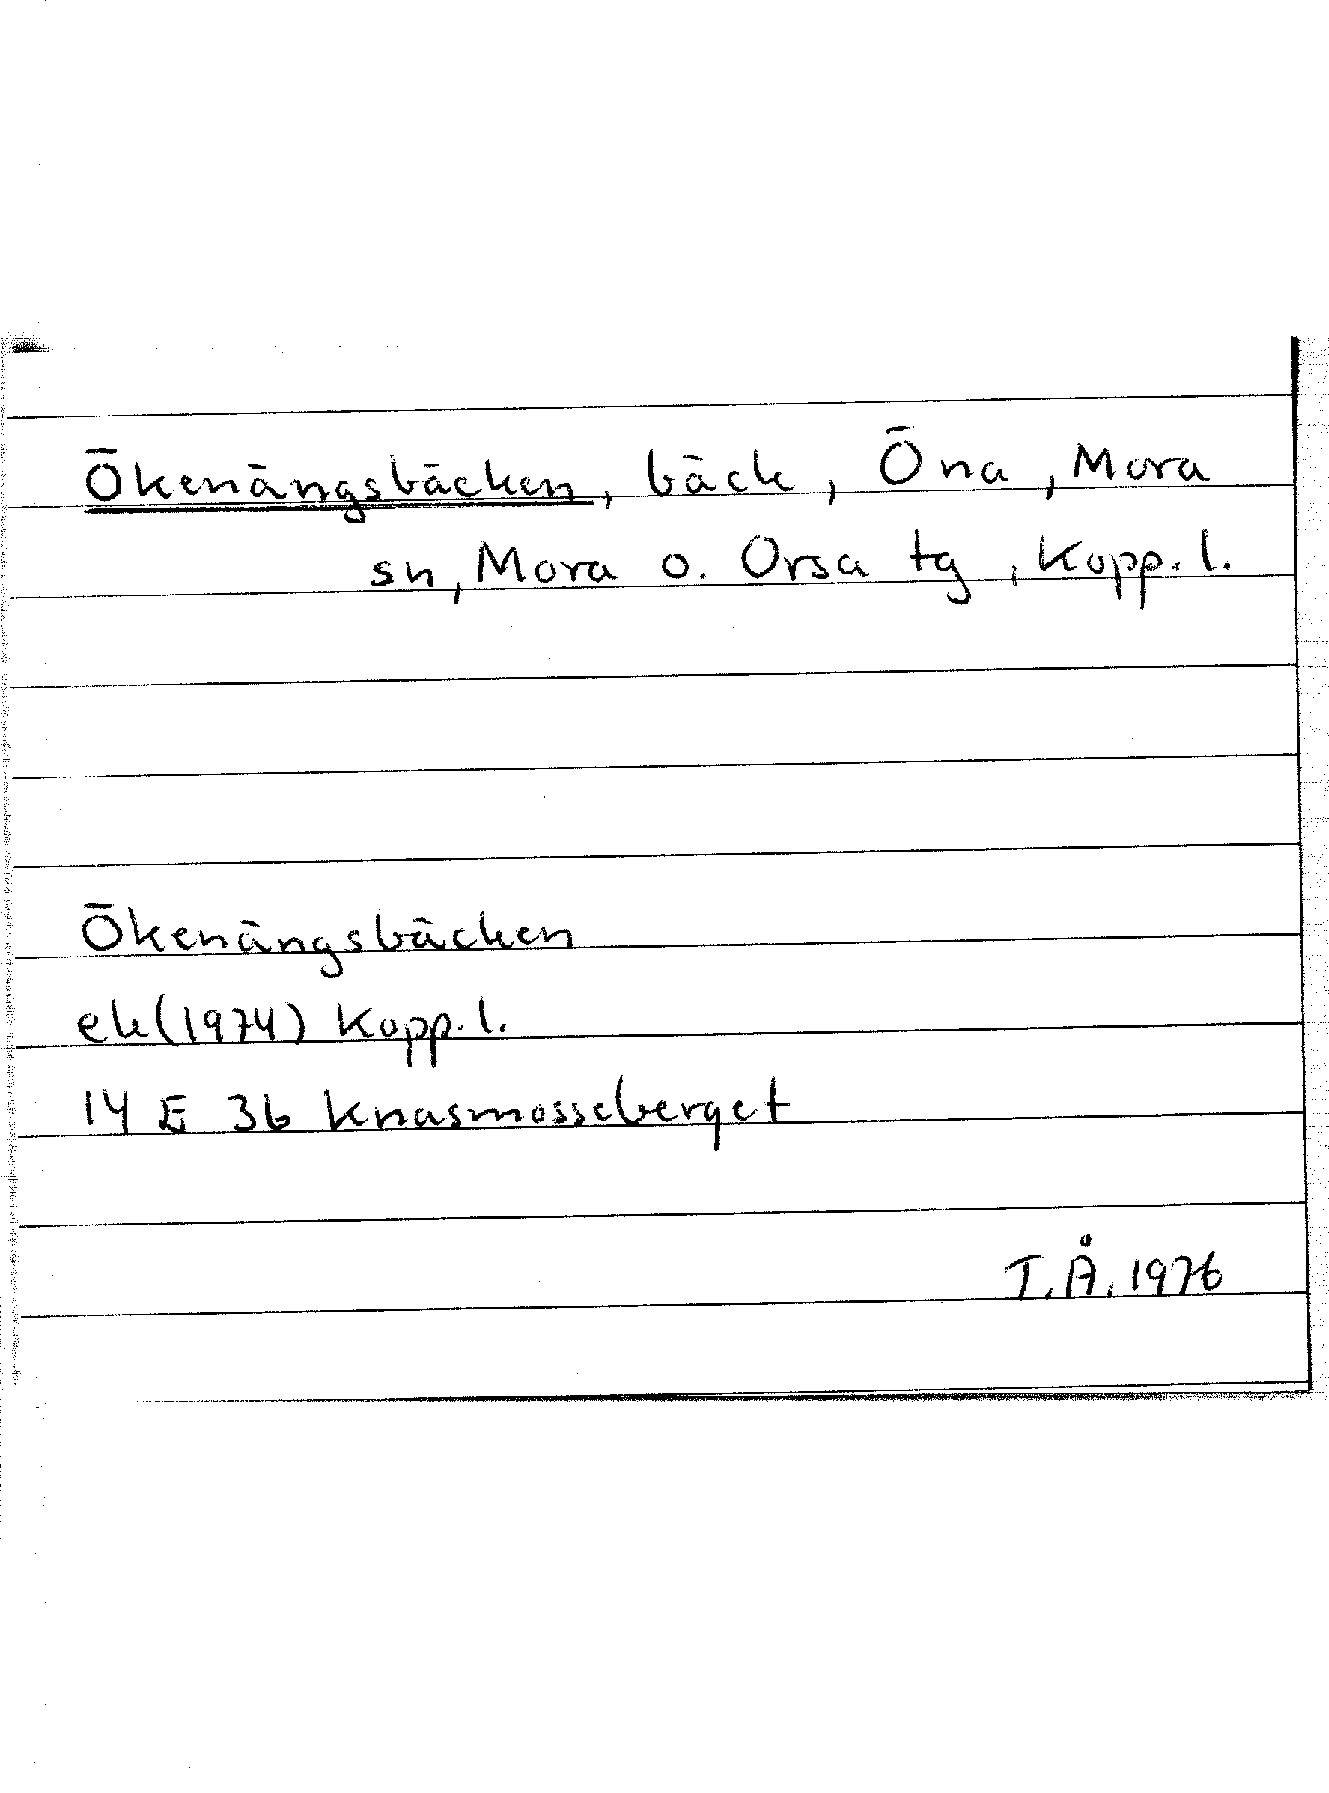 Ökenängsbäcken, bäck, Öna, Mora
sn, Mora o. Orsa tg, Kopp. l.
Ökenängsbäcken
ek (1974) Kopp. l.
14 E 3b Knasmosseberget
T.Å. 1976